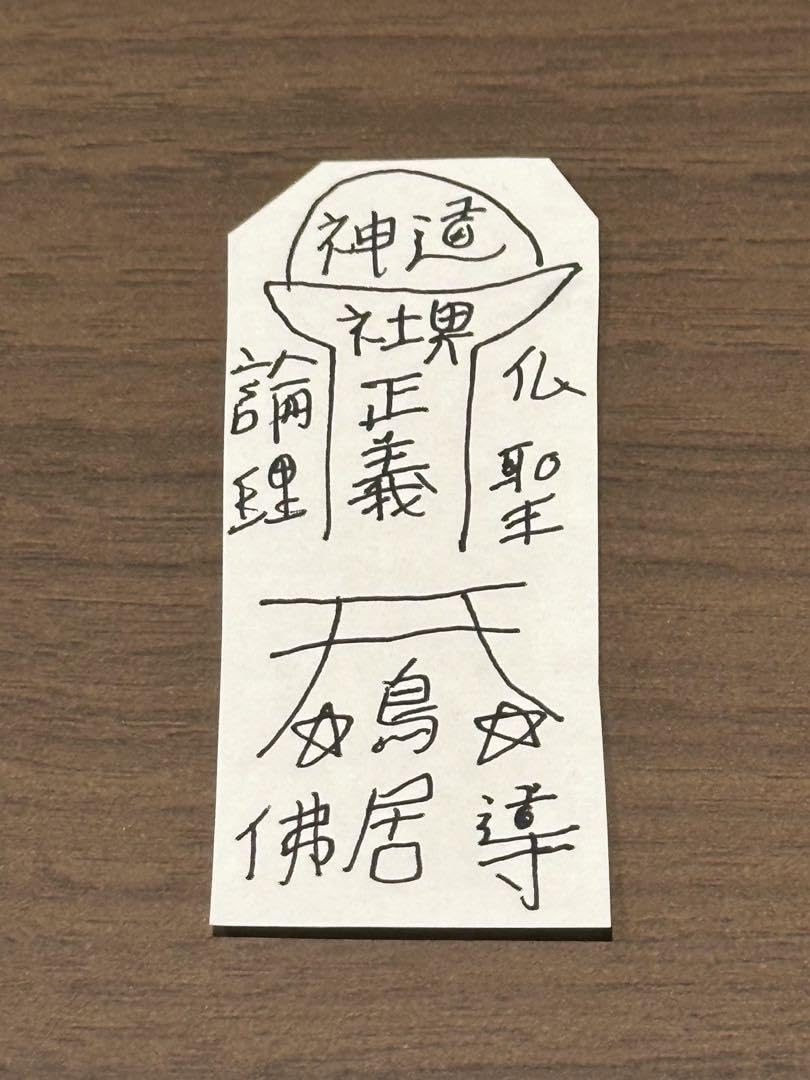 神道
社界
正義
論理
仏聖
鳥居
佛
導